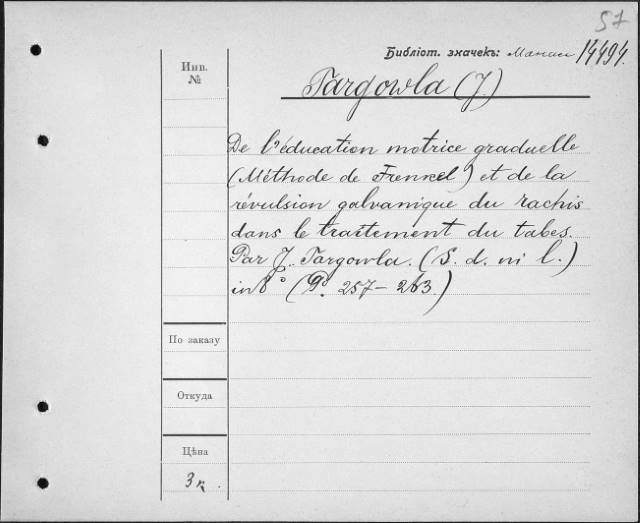 57
Библіот. значекъ: 14494.
Инв.
№
Targowla (J.)
De l'éducation motrice graduelle
(Méthode de Frenkel) et de la
révulsion galvanique du rachis
dans le traitement du tabes.
Par J. Targowla. (S. d. ni l.)
in 8° (P. 257-263.)
По заказу
Откуда
Цѣна
3 к.